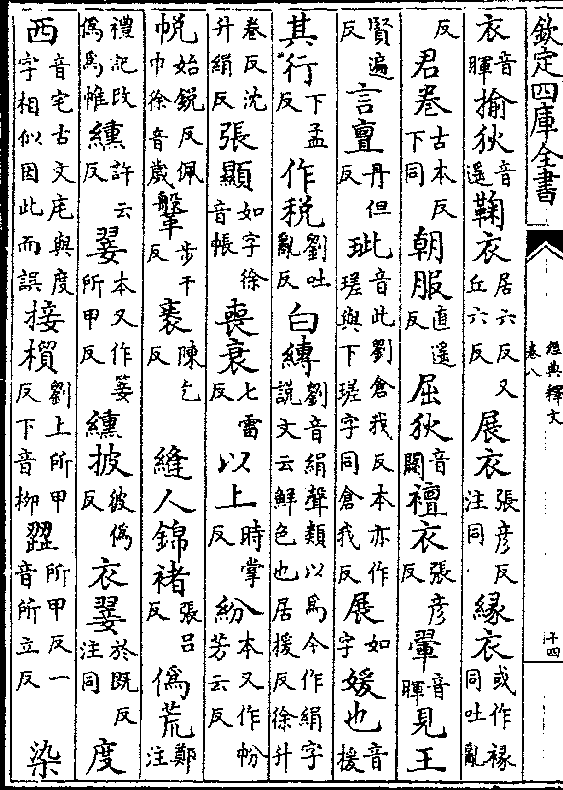 欽定四庫全書
經典釋文
卷八
十四
衣音暉揄狄音遥鞠衣居六反又丘六反展衣張彦反注同縁衣或作褖同吐亂
反君卷古本反下同朝服直遥反屈狄音闕襢衣張彦反翬音暉見王
賢遍反言亶丹但反玼音此劉倉我反本亦作瑳與下瑳字同倉我反展如字媛也音援
其行下孟反作税劉吐亂反白縳劉音絹聲類以為今作絹字說文云鮮色也居援反徐升
卷反沈升絹反張顯如字徐音帳喪衰七雷反以上時掌反紛本又作帉芳云反
帨始銳反佩巾徐音歲鞶步干反袠陳乞反縫人錦褚張吕反偽荒鄭注
禮記改偽為帷纁許云反翣本又作菨所甲反纁披彼偽反衣翣於既反注同度
西音宅古文㡯與度字相似因此而誤接橮劉上所甲反下音柳歰所甲反一音所立反染